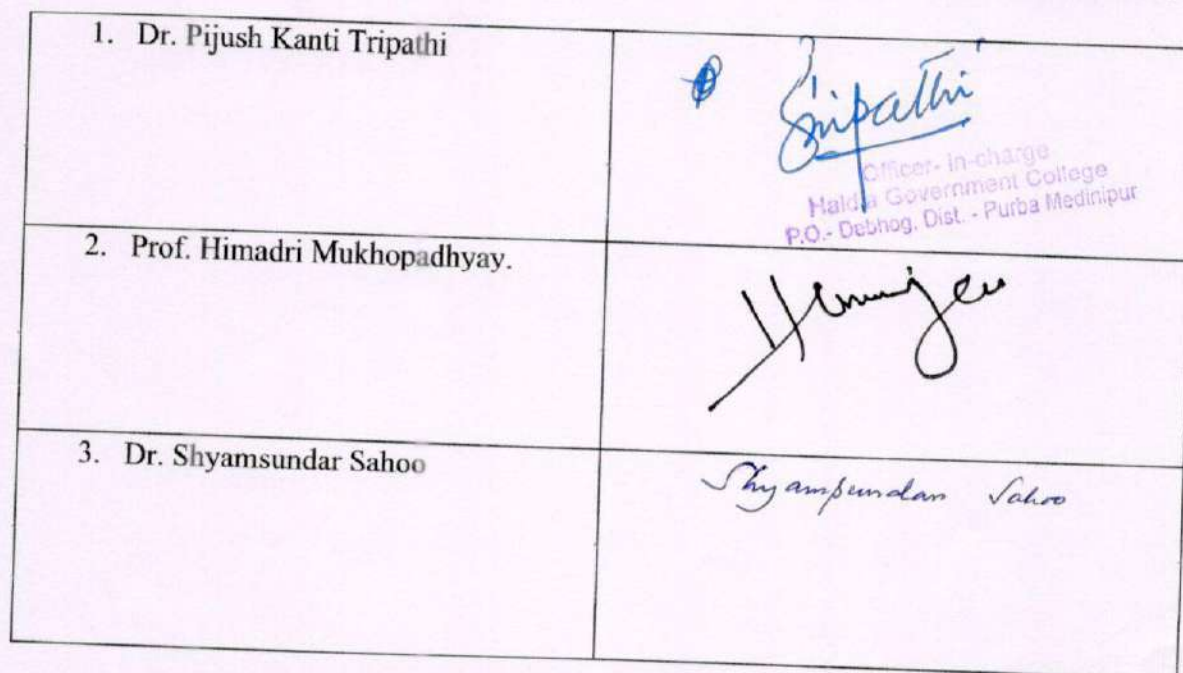 1. Dr. Pijush Kanti Tripathi
Tripathi
Officer- in-charge
Haldia Government College
P.O.- Debhog, Dist. - Purba Medinipur
2. Prof. Himadri Mukhopadhyay.
3. Dr. Shyamsundar Sahoo
Shyamsundar Sahoo